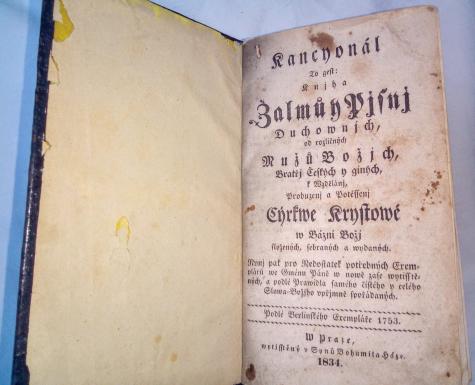 Kancyonál
To gest:
Knjha
Žalmů y Pjsnj
Duchownjch,
od rozličných
Mužů Božjch,
Bratřj Českých y giných,
k Wzdělánj,
Probuzenj a Potěssenj
Cýrkwe Krystowé
w Bázni Božj
složených, sebraných a wydaných.
Nynj pak pro Nedostatek potřebných Exem-
plárů we Gménu Páně w nowě zase wytisstě-
ných, a podlé Prawidla samého čistého y celého
Slowa-Božjho vpřjmně spořádaných.
Podlé Berlinského Exempláře 1753.
W Praze,
wytisstěný v Synů Bohumila Háze.
1834.